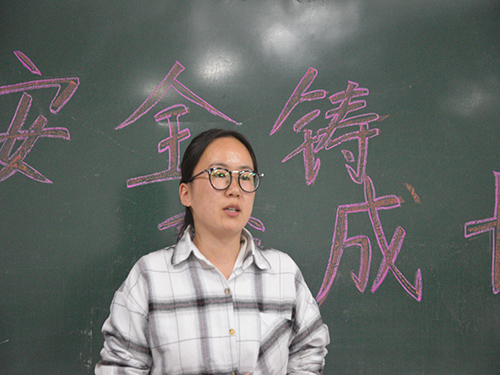 安全铸
成